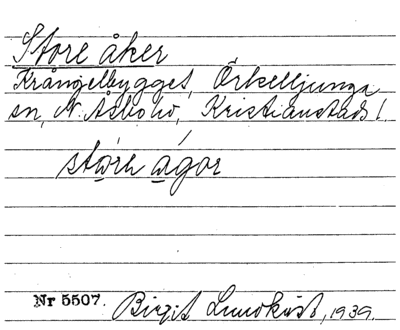 Store åker
Krångelbygget, Örkelljunga
sn, N. Åsbo hd, Kristianstads l.
stǫrh ągor
Nr 5507. Birgit Lundkvist, 1939.